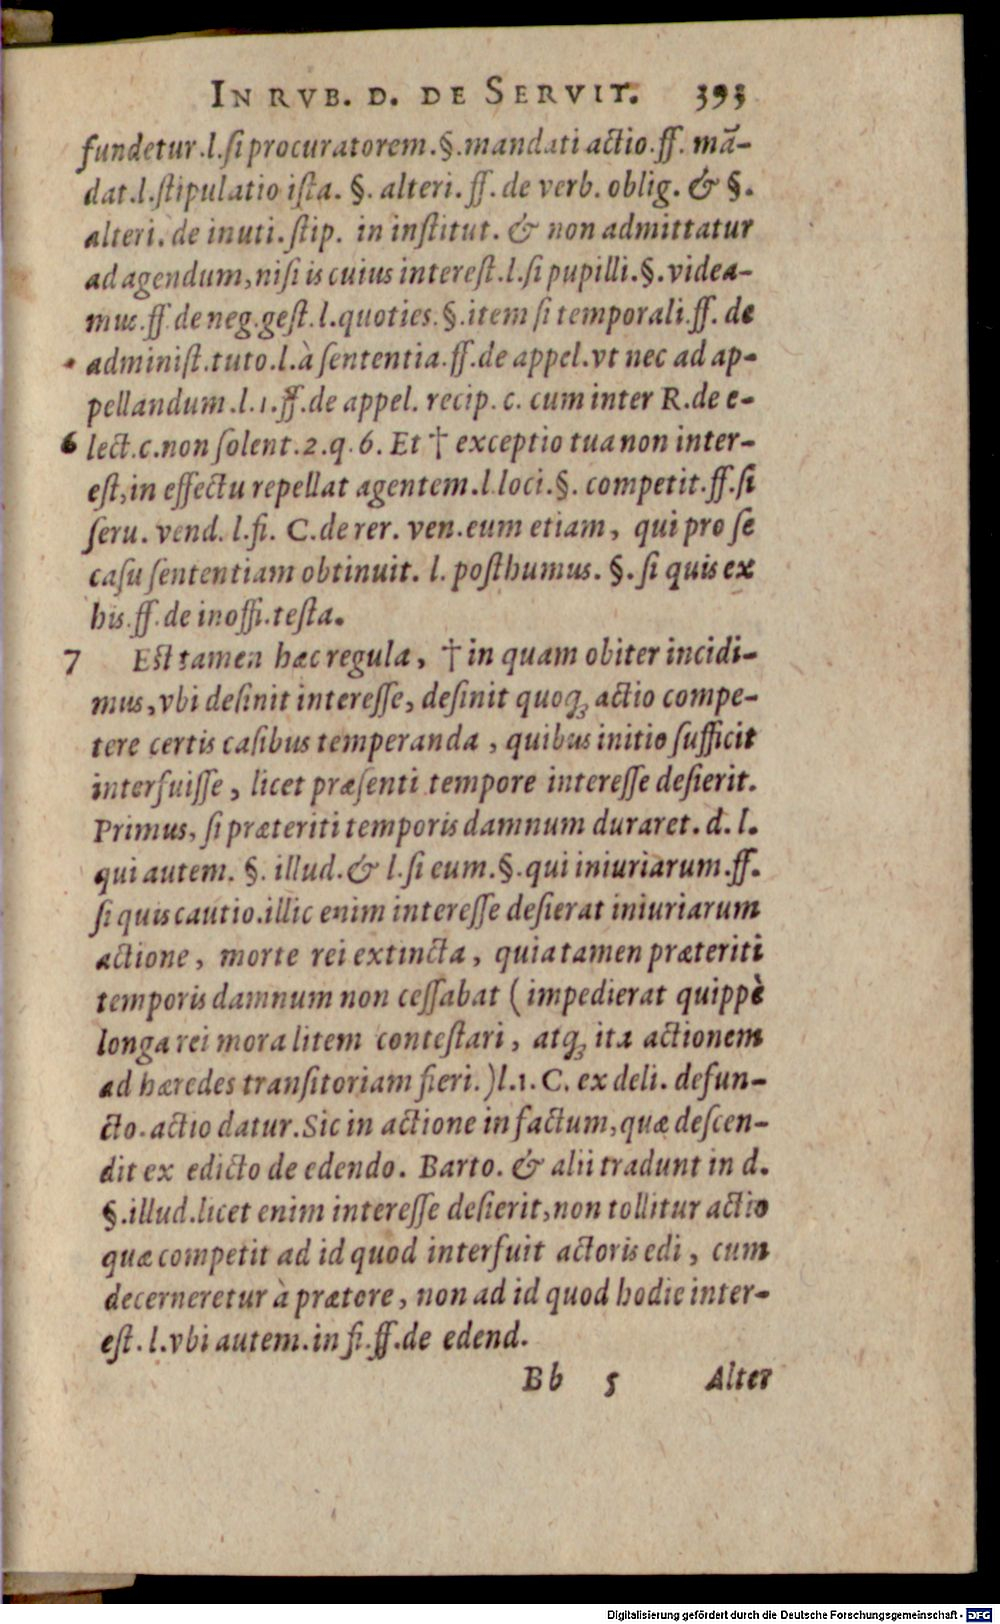 IN RVB. D. DE SERVIT. 393
fundetur.l.ſi procuratorem.§.mandati actio.ff. mā-
dat.l.ſtipulatio iſta. §. alteri. ff. de verb. oblig. & §.
alteri. de inuti. ſtip. in inſtitut. & non admittatur
ad agendum, niſi is cuius intereſt.l.ſi pupilli.§.videa-
mus.ff.de neg.geſt.l.quoties.§.item ſi temporali.ff. de
adminiſt.tuto.l.à ſententia.ff.de appel.vt nec ad ap-
pellandum.l.1.ff.de appel. recip. c. cum inter R.de e-
6 lect.c.non ſolent.2.q.6. Et † exceptio tua non inter-
eſt, in effectu repellat agentem.l.loci.§. competit.ff.ſi
ſeru. vend. l.fi. C.de rer. ven.eum etiam, qui pro ſe
caſu ſententiam obtinuit. l. poſthumus. §. ſi quis ex
his.ff.de inoffi.teſta.
7 Eſt tamen hæc regula, † in quam obiter incidi-
mus, vbi deſinit intereſſe, deſinit quoq; actio compe-
tere certis caſibus temperanda, quibus initio ſufficit
interfuiſſe, licet præſenti tempore intereſſe deſierit.
Primus, ſi præteriti temporis damnum duraret. d. l.
qui autem. §. illud. & l.ſi eum.§.qui iniuriarum.ff.
ſi quis cautio.illic enim intereſſe deſierat iniuriarum
actione, morte rei extincta, quia tamen præteriti
temporis damnum non ceſſabat (impedierat quippè
longa rei mora litem conteſtari, atq; ita actionem
ad hæredes tranſitoriam fieri.)l.1. C. ex deli. defun-
cto.actio datur.Sic in actione in factum, quæ deſcen-
dit ex edicto de edendo. Barto. & alii tradunt in d.
§.illud.licet enim intereſſe deſierit, non tollitur actio
quæ competit ad id quod interfuit actoris edi, cum
decerneretur à prætore, non ad id quod hodie inter-
eſt. l.vbi autem.in fi.ff.de edend.
Bb 5 Alter
Digitalisierung gefördert durch die Deutsche Forschungsgemeinschaft - DFG